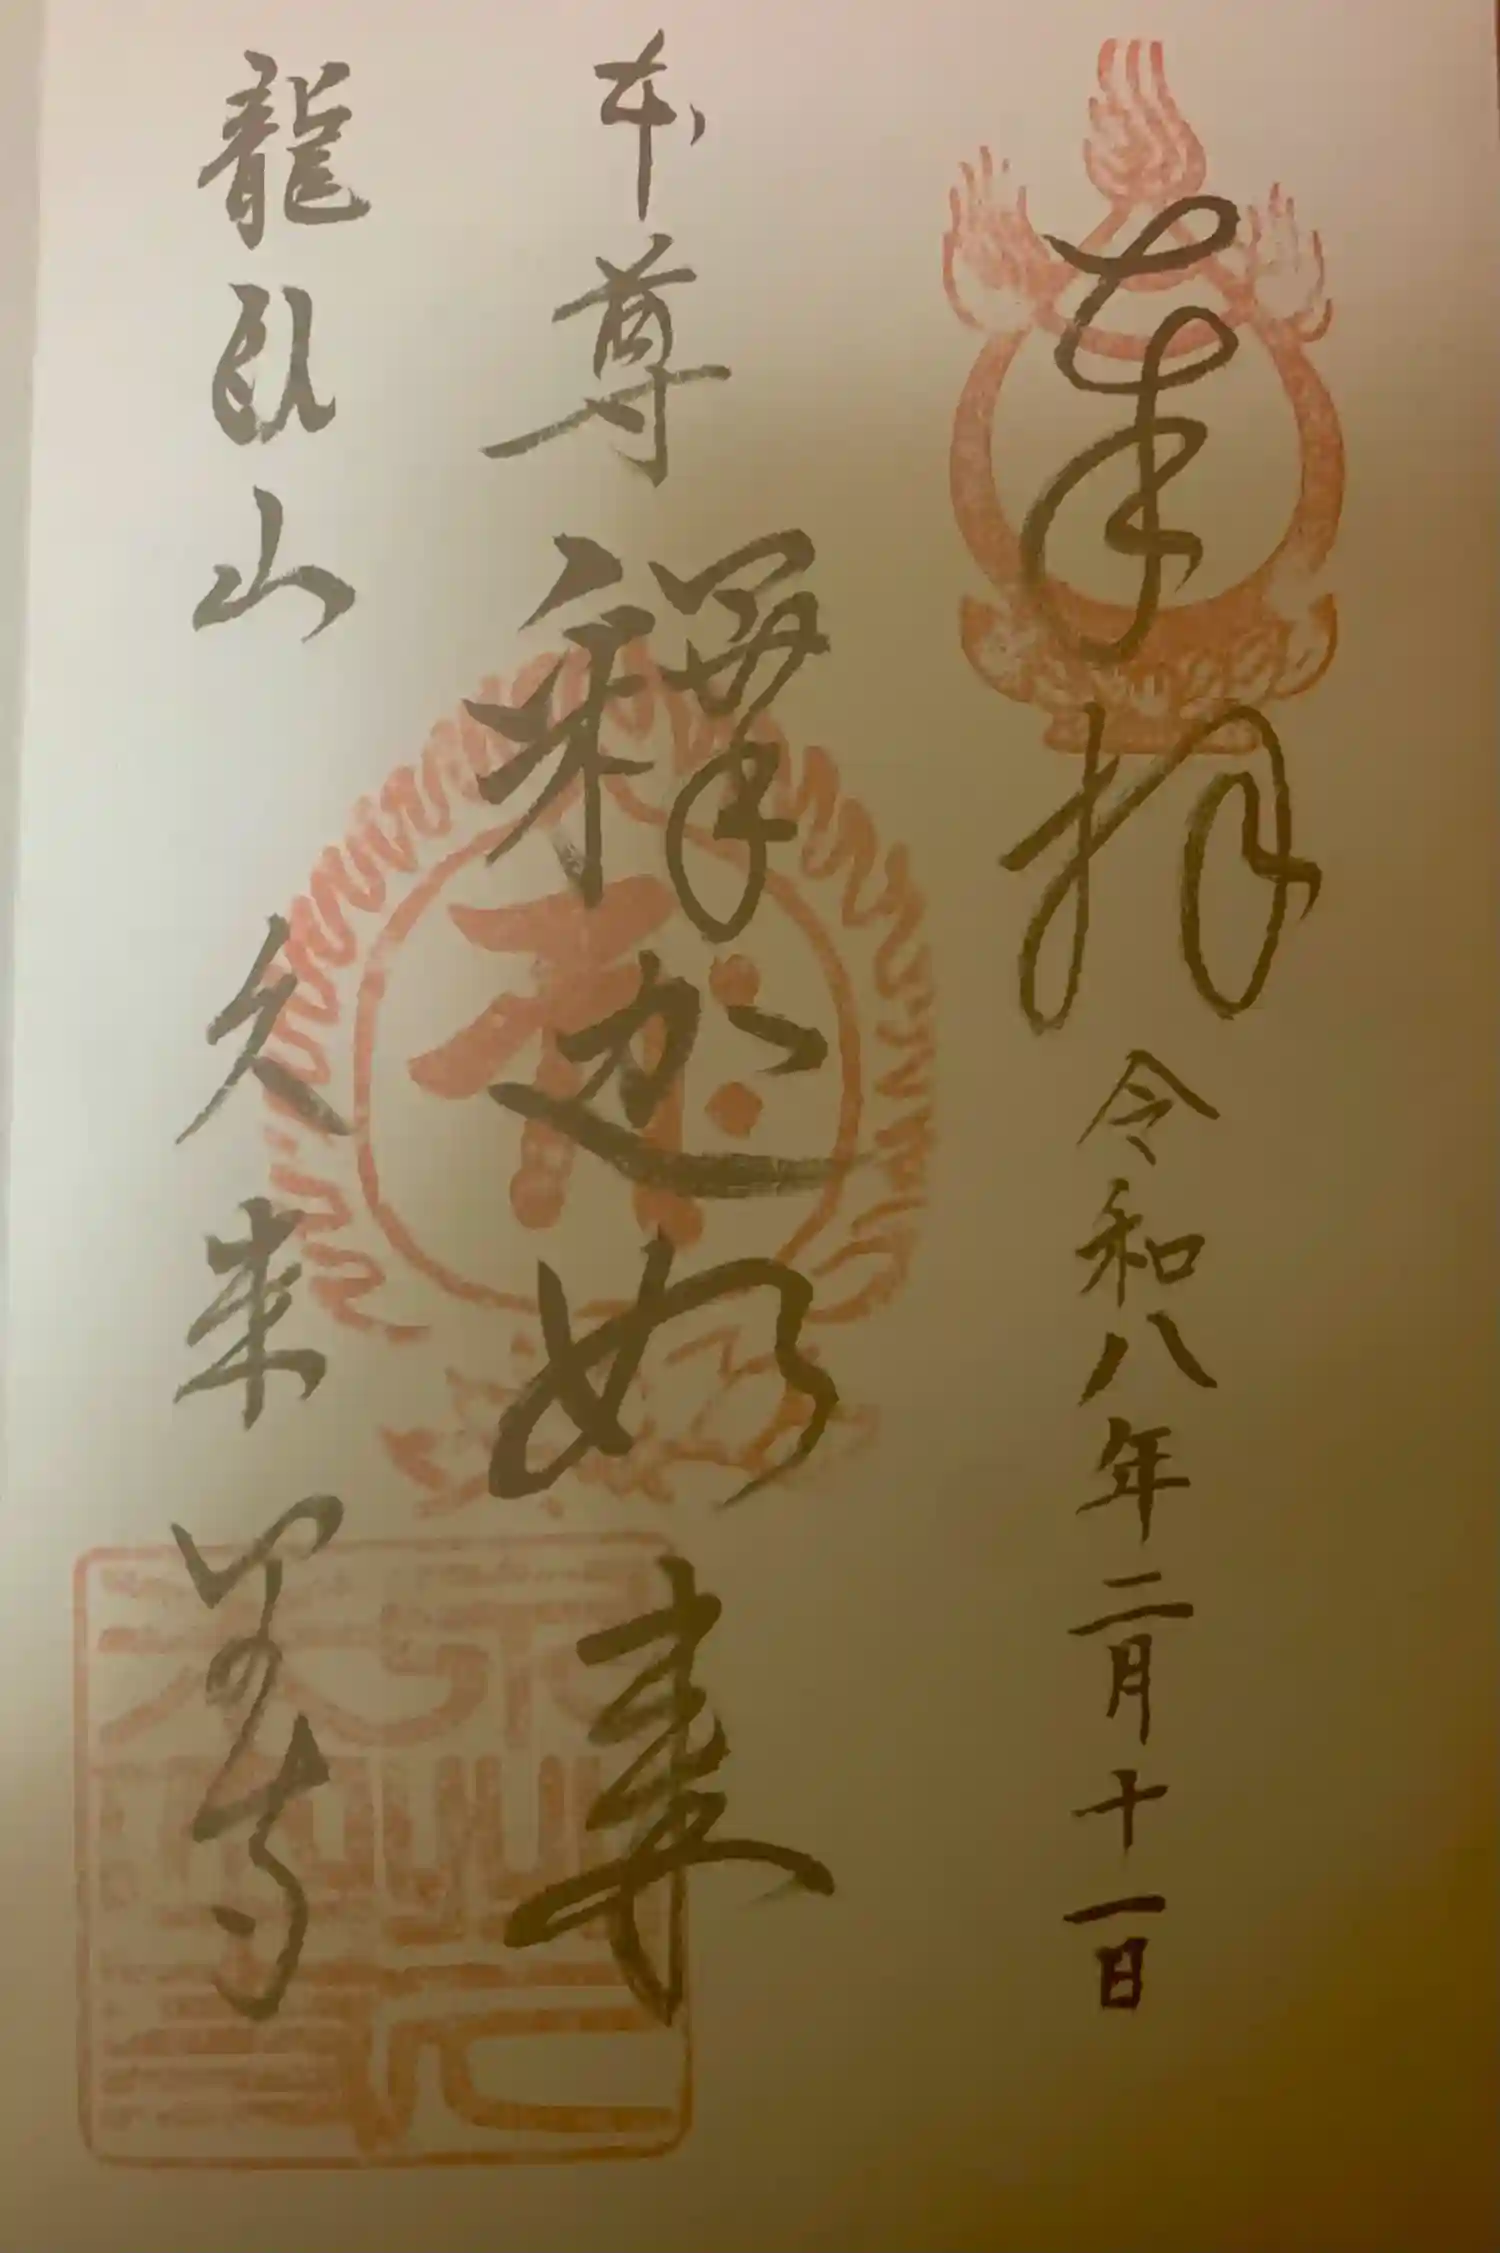 奉拝
令和八年二月十一日
本尊
釋迦如来
龍臥山
久来 寺